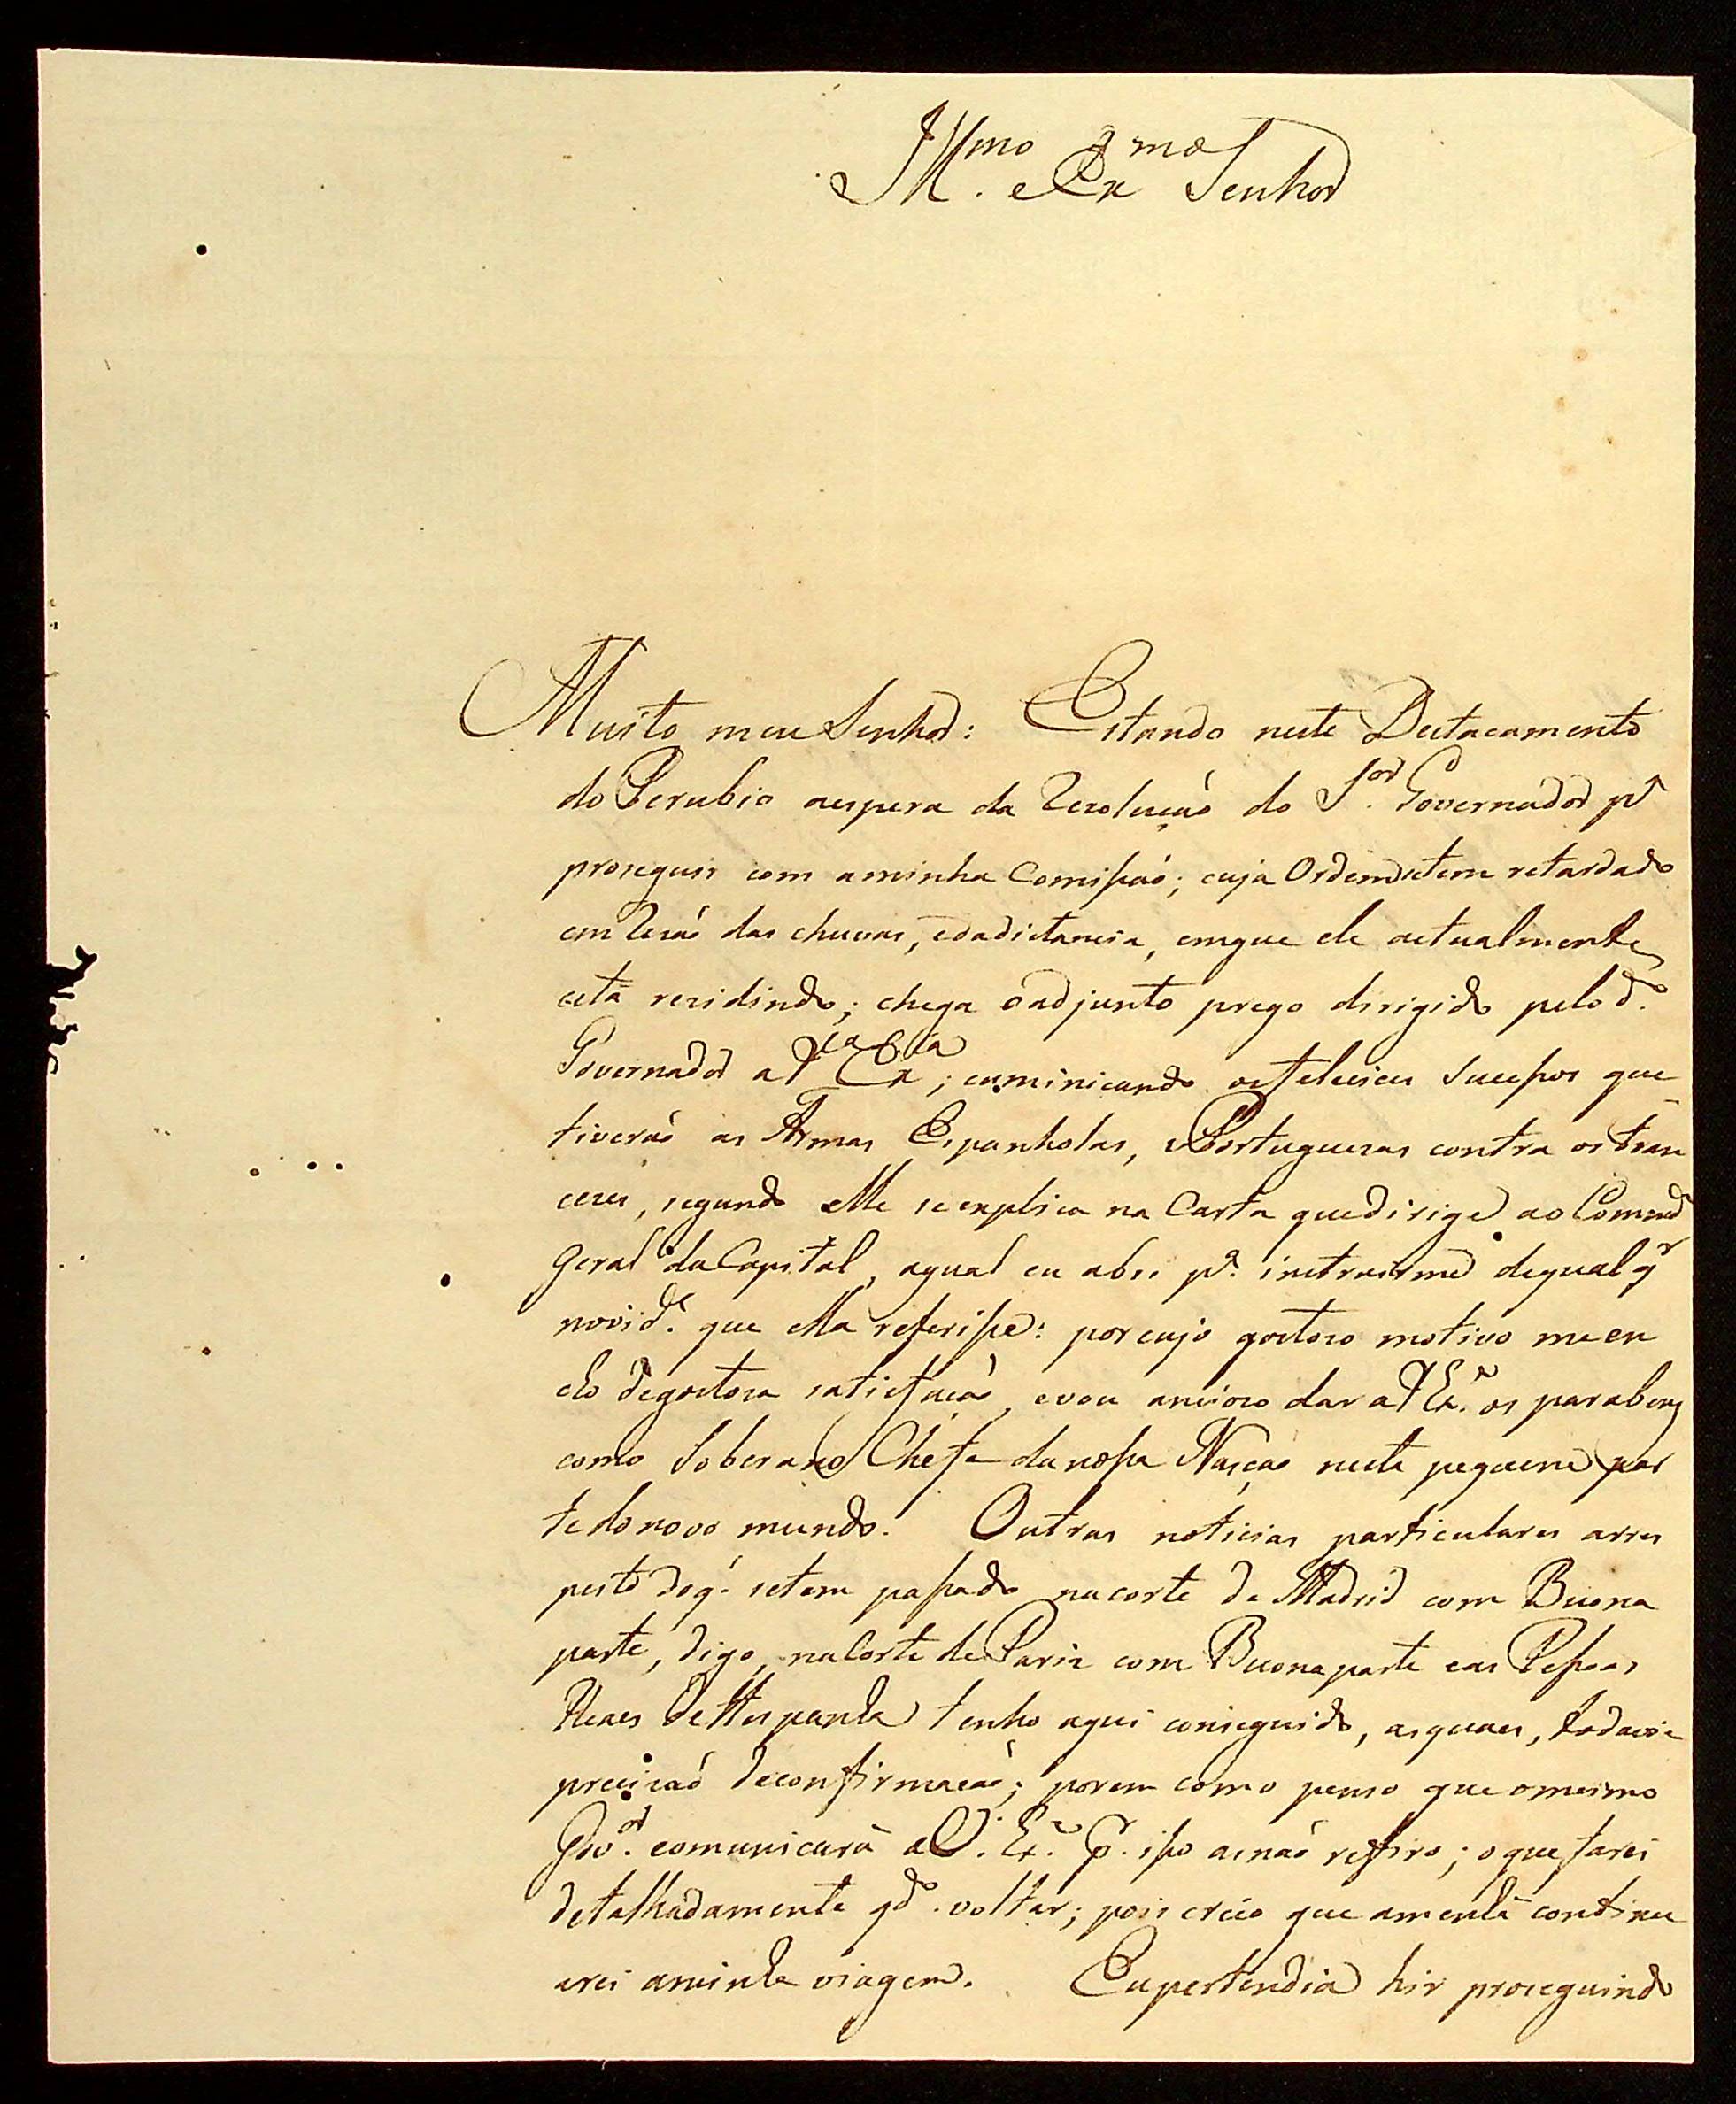 Ill.mo e Ex.mo Senhor
Muito meu Senhor: Estando neste Destacamento
do Perubio aespera da Rezolução do S.or Governador p.a
proseguir com aminha Comissaó; cuja Ordem setem retardado
em rezaó das chuvas, edadistancia, emque ele actualmente
está rezidindo; chega o adjunto prego dirigido pelo d.o
Governador a V.a Ex.cia; cuminicando os felicies sucessos que
tiveraó as Armas Espanholas, e Portuguezas contra os Fran
cezes, segundo elle se explica na Carta quedirige ao Comend.e
geral da Capital, aqual eu abri p.a instruirme dequalq.r
novid.e que ella referisse: por cujo gostozo motivo me en
cho degostoza satisfacaó, evou ancioso dar a V. Ex.a os parabens
como Soberano Chefe danossa Naçaó nesta pequena par
te do novo mundo. Outras noticias particulares arres
peito doq. setem passado nacorte de Madrid com Buona
parte, digo, na Corte de Pariz com Buonaparte eas Pessoas
Reaes de Hespanha tenho aqui conseguido, asquaes, todavia
precizaó deconfirmacaó; porem como penso que omesmo
Gov.or comunicará a V. Ex.a p.r isso asnaó refiro; oque farei
detalhadamente q.do voltar; pois creio que amenhã continu
arei aminha viagem. Eu pertendia hir proseguindo